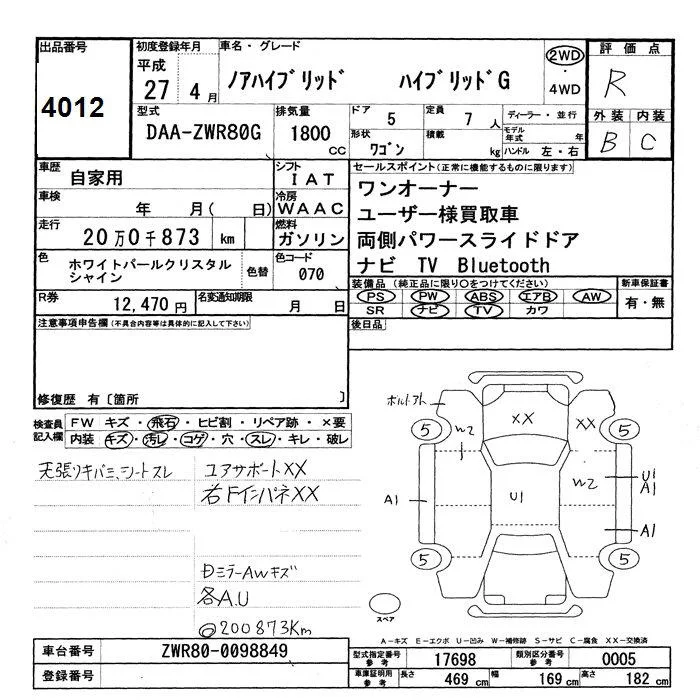 出品番号
4012
初度登録年月
平成
27 4 月
車名・グレード
ノアハイブリッド ハイブリッドG
2WD
・
4WD
評価点
R
外装 内装
B C
型式
DAA-ZWR80G
排気量
1800
CC
ドア 5
形状 ワゴン
定員 7 人
積載 kg
ディーラー・並行
モデル年式 年
ハンドル 左・右
車歴 自家用
シフト IAT
車検 年 月( 日)
冷房 WAAC
走行 20万0千873 km
燃料 ガソリン
色 ホワイトパールクリスタルシャイン
色替
色コード 070
R券 12,470円
名変通知期限 月 日
セールスポイント(正常に機能するものに限ります)
ワンオーナー
ユーザー様買取車
両側パワースライドドア
ナビ TV Bluetooth
装備品 (純正品に限り○をつけてください)
新車保証書
PS PW ABS エアB AW
SR ナビ TV カワ
有・無
後日品
注意事項申告欄(不具合内容等は具体的に記入して下さい)
修復歴 有〔箇所 〕
検査員記入欄
FW キズ・飛石・ヒビ割・リペア跡・×要
内装 キズ・汚レ・コゲ・穴・スレ・キレ・破レ
天張リキバミ、シートスレ
コアサポートXX
右FインパネXX
DミラーAWキズ
各A.U
◎200873Km
ボルトアト
XX
XX
W2
5
5
A1
U1
W2
U1
A1
A1
5
5
スペア
A-キズ E-エクボ U-凹み W-補修跡 S-サビ C-腐食 XX-交換済
車台番号 ZWR80-0098849
登録番号
型式指定番号 参考 17698
類別区分番号 参考 0005
車庫証明用 参考 長さ 469 cm 幅 169 cm 高さ 182 cm